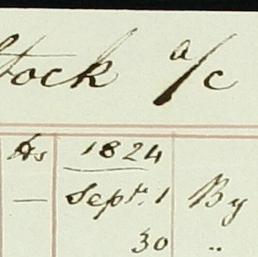 Stock a/c
As 1824
— Septr. 1 By
30 "